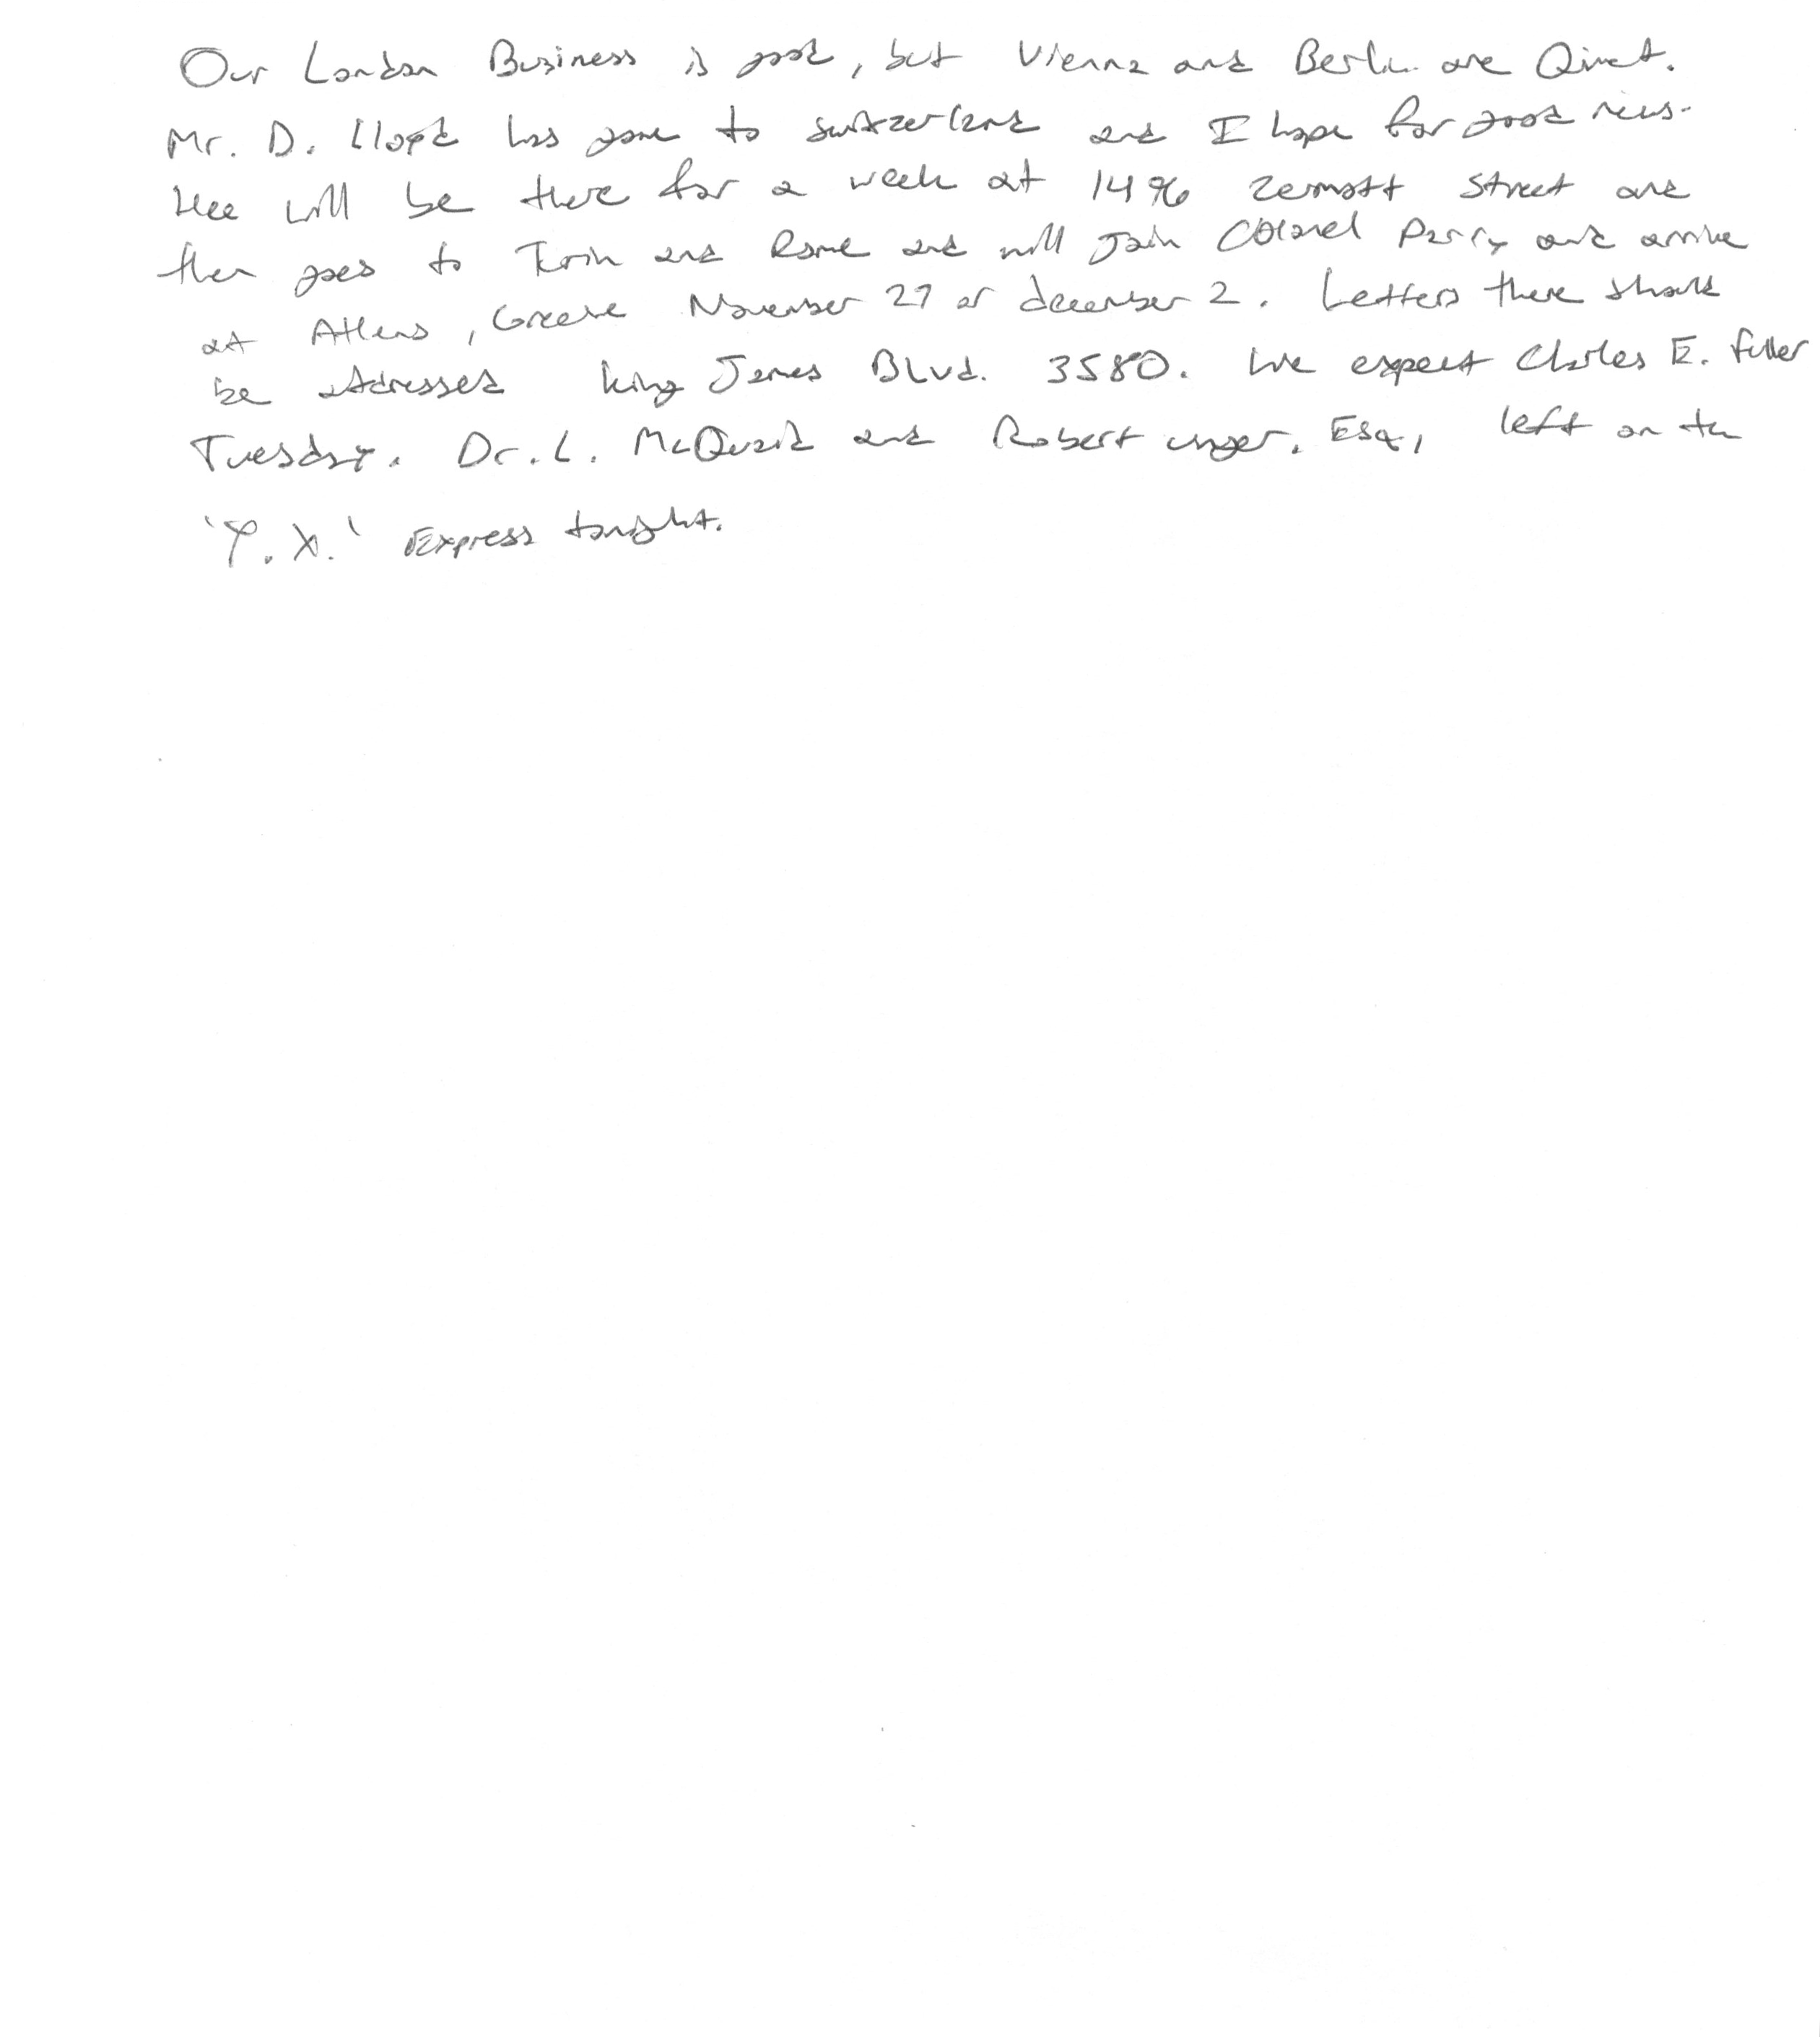 Our London Business is good, but Vienna and Berlin are Qiuet.
Mr. D. Lloyd has gone to Switzerland and I hope for good news.
Hee will be there for a week at 1496 Zermott Street and
then goes to Turin and Rome and will Join Colonel Parry and arrive
at Athens, Greece November 27 or december 2. Letters there should
be addressed king James BLvd. 3580. We expect Charles E. fuller
Tuesday. Dr. L. McQuaid and Robert unger. Esq, left on the
'Y.X.' Express tonight.